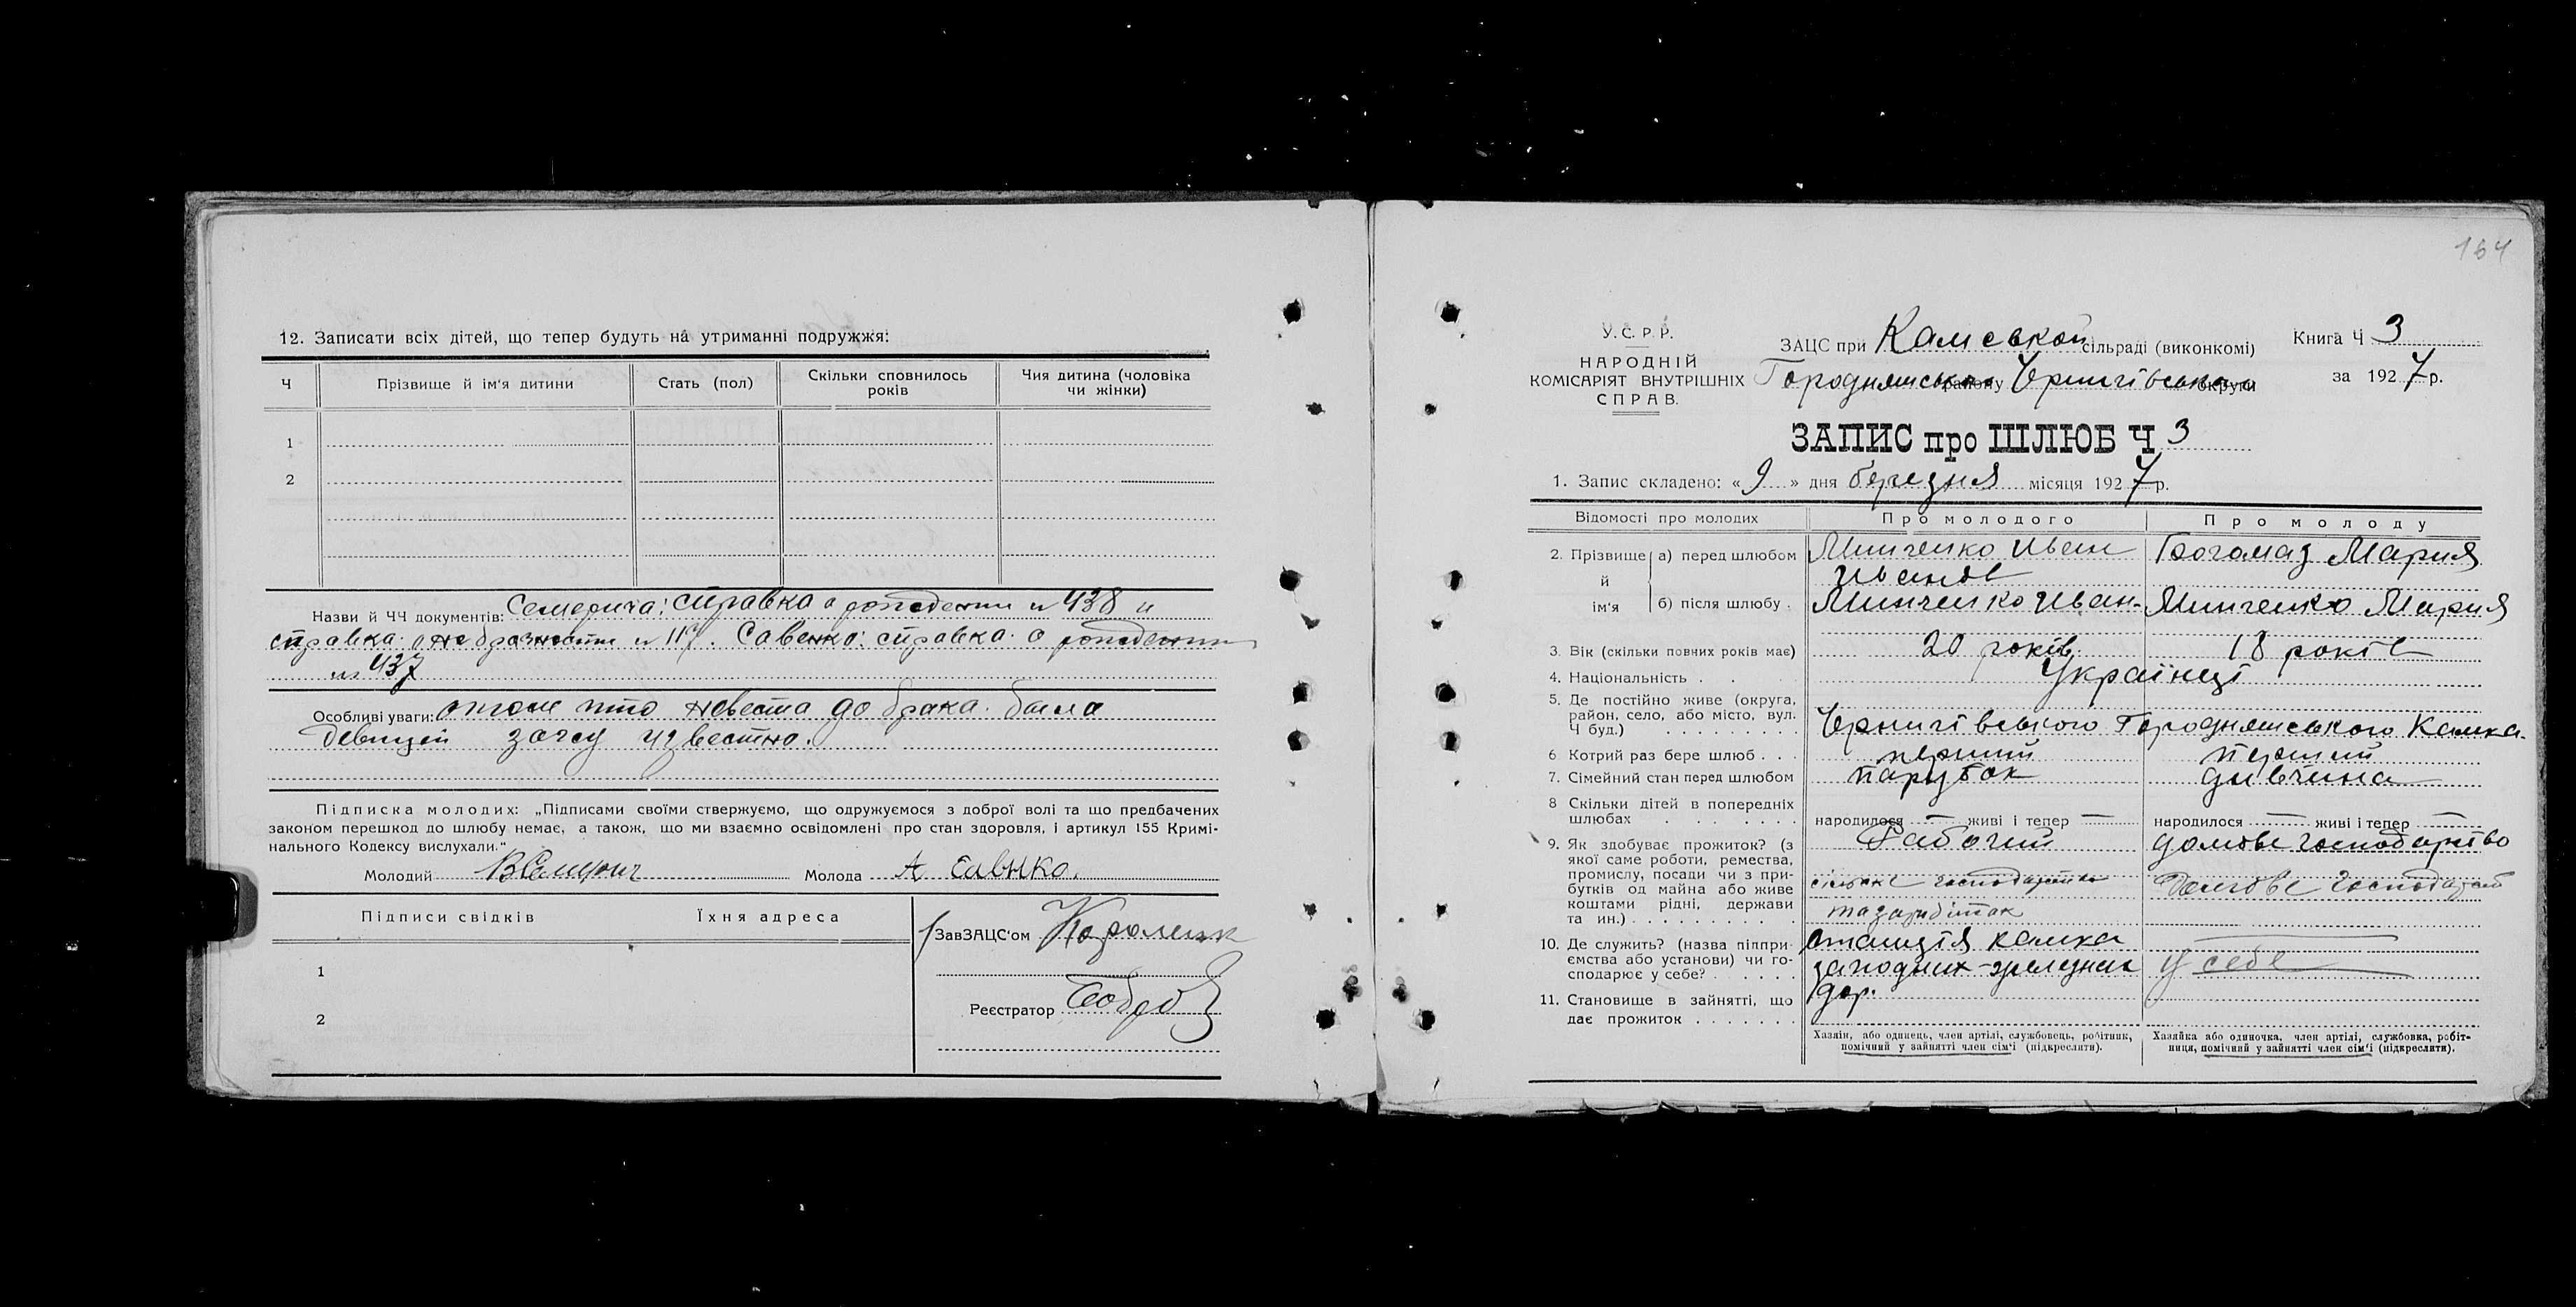 12. Записати всіх дітей, що тепер будуть на утриманні подружжя:
Ч
Прізвище й ім'я дитини
Стать (пол)
Скільки сповнилось років
Чия дитина (чоловіка чи жінки)
1
2
Назви й ЧЧ документів: Семерича: справка о рождении № 438 и
справка о небрачности № 117. Савенко: справка о рождении
№ 437
Особливі уваги: о том что невеста до брака была
девицей загсу известно.
Підписка молодих: „Підписами своїми ствержуємо, що одружуємося з доброї волі та що предбачених
законом перешкод до шлюбу немає, а також, що ми взаємно освідомлені про стан здоровля, і артикул 155 Кримі-
нального Кодексу вислухали."
Молодий Молода А Савнко.
Підписи свідків Їхня адреса
ЗавЗАЦС'ом
1
Реєстратор
2
164
У.С.Р.Р.
НАРОДНІЙ
КОМІСАРІЯТ ВНУТРІШНІХ
СПРАВ.
ЗАЦС при Камськой сільраді (виконкомі)
Городнянського району Чернігівського округи
Книга Ч 3
за 1927 р.
ЗАПИС про ШЛЮБ Ч 3
1. Запис складено: « 9 » дня березня місяця 1927 р.
Відомості про молодих
Про молодого
Про молоду
2. Прізвище й ім'я
а) перед шлюбом Минченко Иван Иванов Богомаз Мария
б) після шлюбу Минченко Иван Минченко Мария
3. Вік (скільки повних років має) 20 років 18 років
4. Національність Українці
5. Де постійно живе (округа, район, село, або місто, вул. Ч буд.) Чернигівського Городнянського Камка
6 Котрий раз бере шлюб перший перший
7. Сімейний стан перед шлюбом парубок дивчина
8 Скільки дітей в попередніх шлюбах народилося — живі і тепер — народилося — живі і тепер —
9. Як здобуває прожиток? (з якої саме роботи, ремества, промислу, посади чи з прибутків од майна або живе коштами рідні, держави та ин.)
Рабочий
сільске господарство
та заробіток
домове господарство
Домове господарст
10. Де служить? (назва піппри-ємства або установи) чи го-сподарює у себе?
станція камка
западних-железних
дор.
—
у себе
11. Становище в зайнятті, що дає прожиток
Хазяїн, або одинець, член артілі, службовець, робітник, помічний у зайнятті член сім'ї (підкреслити).
Хазяйка або одиночка, член артілі, службовка, робіт-ниця, помічний у зайнятті член сім'ї (підкреслити).